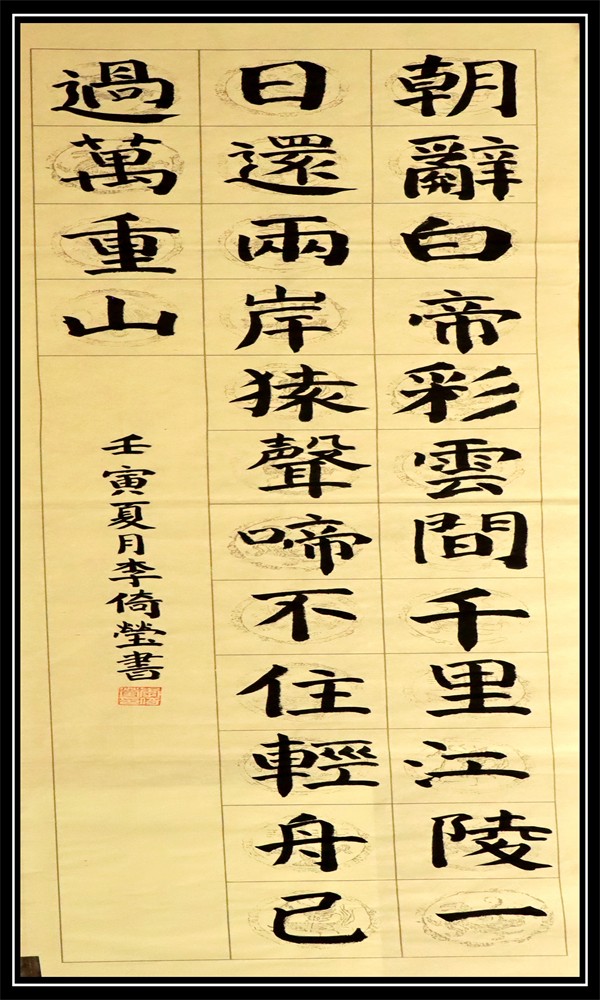 朝辭白帝彩雲間千里江陵一
日還兩岸猿聲啼不住輕舟已
過萬重山
壬寅夏月李倚瑩書